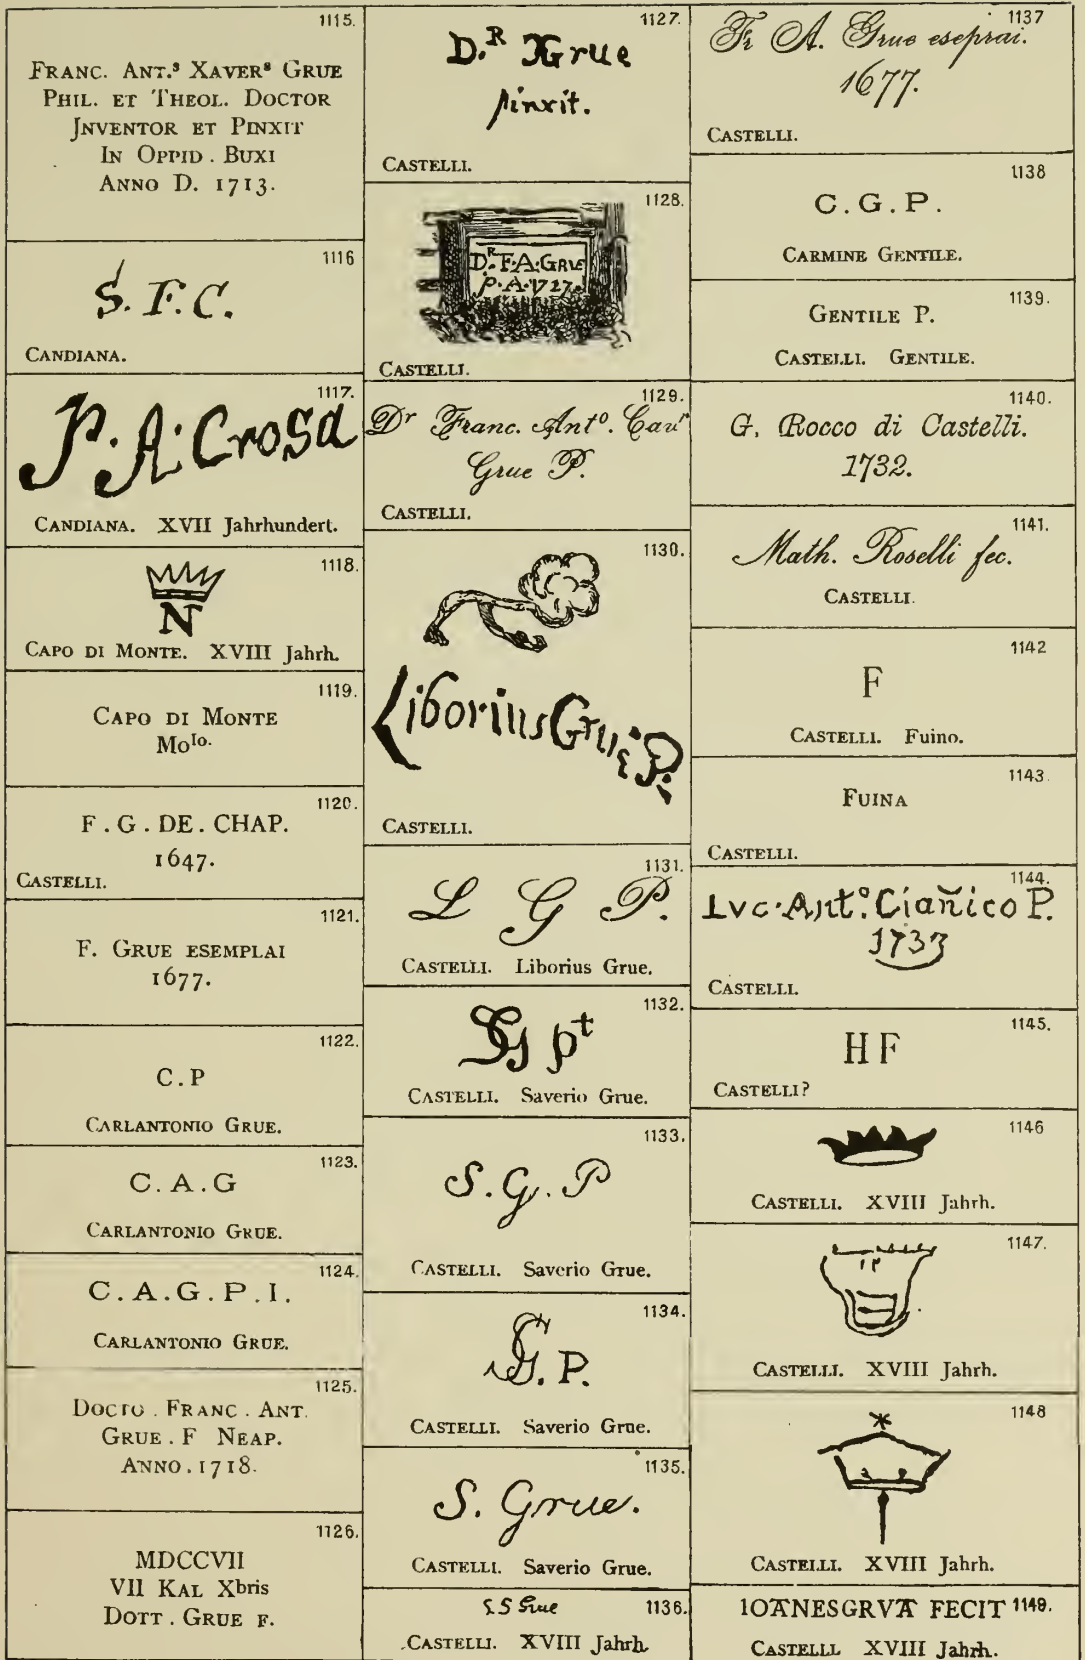 1115.
FRANC. ANT.ˢ XAVERˢ GRUE
PHIL. ET THEOL. DOCTOR
JNVENTOR ET PINXIT
IN OPPID. BUXI
ANNO D. 1713.
1116
S. F. C.
CANDIANA.
1117.
P. A. Crosa
CANDIANA. XVII Jahrhundert.
1118.
N
CAPO DI MONTE. XVIII Jahrh.
1119.
CAPO DI MONTE
Moˡᵒ.
1120.
F. G. DE. CHAP.
1647.
CASTELLI.
1121.
F. GRUE ESEMPLAI
1677.
1122.
C. P
CARLANTONIO GRUE.
1123.
C. A. G
CARLANTONIO GRUE.
1124.
C. A. G. P. I.
CARLANTONIO GRUE.
1125.
DOCTO. FRANC. ANT.
GRUE. F NEAP.
ANNO. 1718.
1126.
MDCCVII
VII KAL Xbris
DOTT. GRUE F.
1127.
D.ᴿ XGrue
pinxit.
CASTELLI.
1128.
Dᴿ. F. A. GRUE
p. A. 1727.
CASTELLI.
1129.
Dʳ Franc. Antᵒ. Cavʳ
Grue P.
CASTELLI.
1130.
Liborius Grue P.
CASTELLI.
1131.
L G P.
CASTELLI. Liborius Grue.
1132.
SG pᵗ
CASTELLI. Saverio Grue.
1133.
S. G. P
CASTELLI. Saverio Grue.
1134.
SG. P.
CASTELLI. Saverio Grue.
1135.
S. Grue.
CASTELLI. Saverio Grue.
1136.
S Grue
CASTELLI. XVIII Jahrh.
1137
Fr A. Grue eseprai.
1677.
CASTELLI.
1138
C. G. P.
CARMINE GENTILE.
1139.
GENTILE P.
CASTELLI. GENTILE.
1140.
G. Rocco di Castelli.
1732.
1141.
Math. Roselli fec.
CASTELLI.
1142
F
CASTELLI. Fuino.
1143
FUINA
CASTELLI.
1144.
Lvc. Antᵒ. Ciañico P.
1733
CASTELLI.
1145.
HF
CASTELLI?
1146
CASTELLI. XVIII Jahrh.
1147.
CASTELLI. XVIII Jahrh.
1148
CASTELLI. XVIII Jahrh.
1149.
IOANESGRVA FECIT
CASTELLI. XVIII Jahrh.